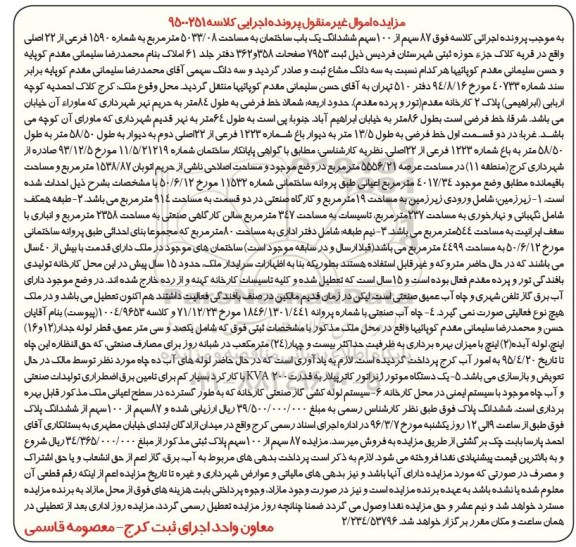 مزایده اموال غیرمنقول پرونده اجرایی کلاسه ۹۵۰۰۲۵۱
به موجب پرونده اجرائی کلاسه فوق ۸۷ سهم از ۱۰۰ سهم ششدانگ یک باب ساختمان به مساحت ۵۰۳۳/۰۸ مترمربع به شماره ۱۵۹۰ فرعی از ۲۲ اصلی
واقع در قریه کلاک جزء حوزه ثبتی شهرستان فردیس ذیل ثبت ۷۹۵۳ صفحات ۳۵۸و۳۶۲ دفتر جلد ۶۱ املاک بنام محمدرضا سلیمانی مقدم کوپایه
و حسن سلیمانی مقدم کوپائیها هر کدام نسبت به سه دانگ مشاع ثبت و صادر گردید و سه دانگ سهمی آقای محمدرضا سلیمانی مقدم کوپایه برابر
سند شماره ۴۰۷۳۳ مورخ ۹۴/۸/۱۶ دفتر ۵۱۰ تهران به آقای حسن سلیمانی مقدم کوپائیها منتقل گردید. محل وقوع ملک: کرج کلاک احمدیه کوچه
اربابی (ابراهیمی) پلاک ۲ کارخانه مقدم(تور و پرده مقدم). حدود اربعه: شمالا: خط فرضی به طول ۸۴متر به حریم نهر شهرداری که ماوراء آن خیابان
می باشد. شرقا: خط فرضی است بطول ۸۶متر به خیابان ابراهیم آباد. جنوبا: پی است به طول ۶۴متر به نهر قدیم شهرداری که ماورای آن کوچه می
باشد. غربا: در دو قسمت اول خط فرضی به طول ۱۳/۵ متر به دیوار باغ شماره ۱۲۲۳ فرعی از ۲۲اصلی دوم به دیوار به طول ۵۸/۵۰ متر به طول
۵۸/۵۰ متر به باغ شماره ۱۲۲۳ فرعی از ۲۲اصلی. نظریه کارشناسی: مطابق با گواهی پایانکار ساختمان شماره ۱۱/۵/۲۱۲۱۹ مورخ ۹۳/۱۲/۵ صادره از
شهرداری کرج(منطقه ۱۱) در مساحت عرصه ۵۵۵۶/۲۱ مترمربع در وضع موجود و مساحت اصلاحی ناشی از حریم اتوبان ۱۵۳۸/۸۷ مترمربع و مساحت
باقیمانده مطابق وضع موجود ۴۰۱۷/۳۴ مترمربع اعیانی طبق پروانه ساختمانی شماره ۱۱۵۳۲ مورخ ۵۰/۶/۱۲ با مشخصات بشرح ذیل احداث شده
است. ۱- زیرزمین: شامل ورودی زیرزمین به مساحت ۱۹مترمربع و کارگاه صنعتی در دو قسمت به مساحت ۹۱۴ مترمربع می باشد. ۲- طبقه همکف
شامل نگهبانی و نهارخوری به مساحت ۲۳۷مترمربع، تاسیسات به مساحت ۳۴۷ مترمربع سالن کارگاهی صنعتی به مساحت ۲۳۵۸ مترمربع و انباری با
سقف ایرانیت به مساحت ۵۴۴مترمربع می باشد. ۳- نیم طبقه: شامل دفتر اداری به مساحت ۸۰مترمربع که مجموعا بنای احداثی طبق پروانه ساختمانی
مورخ ۵۰/۶/۱۲ به مساحت ۴۴۹۹ مترمربع می باشد(قبلا ارسال و در سابقه موجود است) ساختمان های موجود در ملک دارای قدمت با بیش از ۴۰سال
می باشند که در حال حاضر متروکه و غیر قابل استفاده هستند بطوریکه بنا به اظهارات سرایدار ملک، حدود ۱۵ سال پیش در این محل کارخانه تولیدی
بافندگی تور و پرده مقدم فعال بوده است و ۱۵سال است که تعطیل شده و کلیه تاسیسات کارخانه کهنه و از رده خارج شده اند. در وضع موجود دارای
آب برق گاز تلفن شهری و چاه آب عمیق صنعتی است. لیکن در زمان قدیم مالکین در صنف بافندگی فعالیت داشتند هم اکنون تعطیل می باشد و در ملک
هیچ نوع فعالیتی صورت نمی گیرد. ۴- چاه آب صنعتی با شماره پروانه ۱۸۴۶/۱۳۰۱/۴۴۱ مورخ ۷۱/۱۲/۲۳ و کلاسه ۱۰۰۴/۹۶۵۳(پیوست) بنام آقایان
حسن و محمدرضا سلیمانی مقدم کوپائیها واقع در محل ملک مذکور با مشخصات ثبتی فوق که شامل یکصد و سی متر عمق، قطر لوله جدار(۱۲و۱۶)
اینچ، لوله آبده(۲) اینچ با میزان بهره برداری به ظرفیت حداکثر بیست و چهار(۲۴) مترمکعب در شبانه روز برای مصارف صنعتی، که حق النظاره این چاه
تا تاریخ ۹۵/۴/۲۰ به امور آب کرج پرداخت گردیده است لازم به یادآوری است که در حال حاضر لوله های آب ده چاه مورد نظر توسط مالک در حال
تعویض و بازسازی می باشد. ۵- یک دستگاه موتور ژنراتور کاترپیلار به قدرت ۲۰۰ KVA با کارکرد بسیار کم برای تامین برق اضطراری تولیدات صنعتی
و آب چاه موجود با سیستم ایمنی در محل کارخانه ۶- سیستم لوله کشی گاز صنعتی کارخانه که به طور گسترده در سطح اعیانی ملک مذکور قابل بهره
برداری است. ششدانگ پلاک فوق طبق نظر کارشناس رسمی به مبلغ ۳۹/۵۰۰/۰۰۰/۰۰۰ ریال ارزیابی شده و ۸۷سهم از ۱۰۰سهم از ششدانگ پلاک
فوق طبق از ساعت ۹ الی ۱۲ روز یکشنبه مورخ ۹۶/۳/۷ در اداره اجرای اسناد رسمی کرج واقع در میدان آزادگان ابتدای خیابان مطهری به بستانکاری آقای
احمد پارسا بابت چک برگشتی از طریق مزایده به فروش میرسد. مزایده ۸۷ سهم از ۱۰۰سهم پلاک ثبتی مذکور از مبلغ ۳۴/۳۶۵/۰۰۰/۰۰۰ ریال شروع
و به بالاترین قیمت پیشنهادی نقدا فروخته می شود. لازم به ذکر است پرداخت بدهی های مربوط به آب، برق، گاز اعم از حق انشعاب و یا حق اشتراک
و مصرف در صورتی که مورد مزایده دارای آنها باشد و نیز بدهی های مالیاتی و عوارض شهرداری و غیره تا تاریخ مزایده اعم از اینکه رقم قطعی آن
معلوم شده یا نشده باشد به عهده برنده مزایده است و نیز در صورت وجود مازاد، وجوه پرداختی بابت هزینه های فوق از محل مازاد به برنده مزایده
مسترد خواهد شد و نیم عشر و حق مزایده نقدا وصول می گردد ضمنا چنانچه روز مزایده تعطیل رسمی گردد، مزایده روز اداری بعد از تعطیلی در
همان ساعت و مکان مقرر برگزار خواهد شد. ۲/۲۳۴/۵۳۷۹۶
معاون واحد اجرای ثبت کرج- معصومه قاسمی